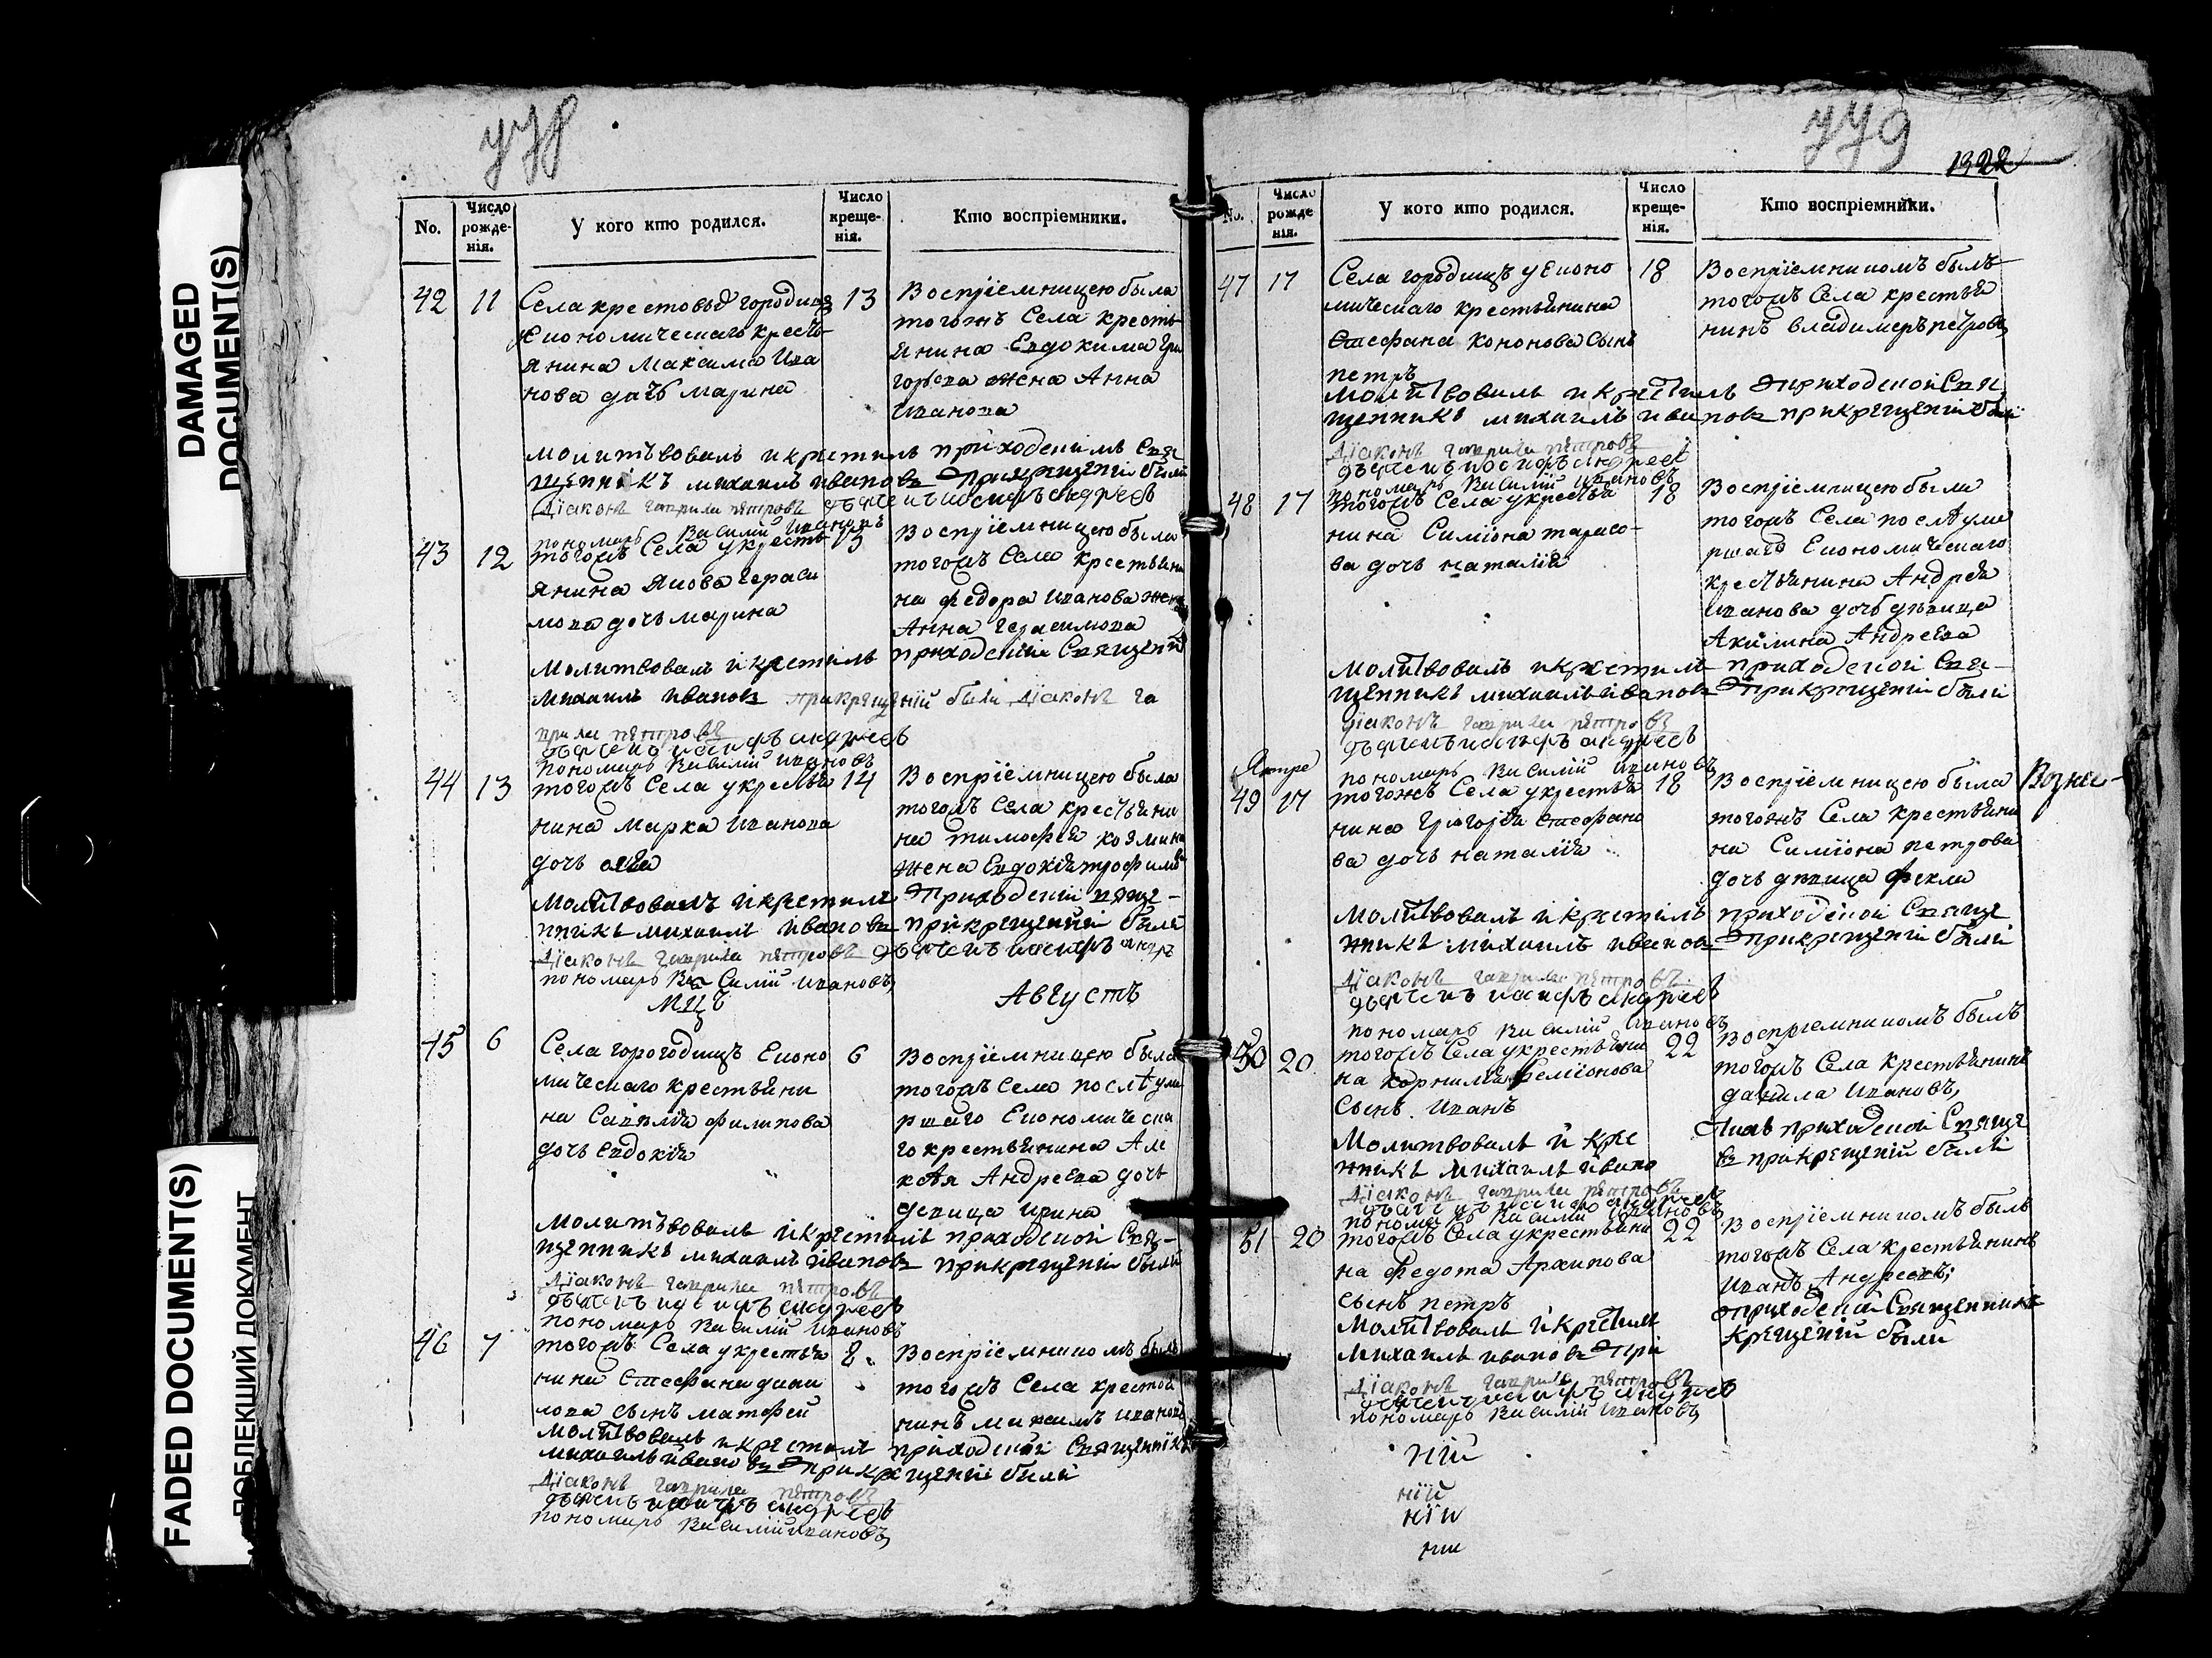 DAMAGED
DOCUMENT(S)
FADED DOCUMENT(S)
ПОБЛЕКШИЙ ДОКУМЕНТ
778
No.
Число рожде-нія.
У кого кто родился.
Число креще-нія.
Кто воспріемники.
42 11
Села крестовыхъ городищъ
Економическаго кресть-
янина Максима Ива
нова дочь марина
13
Воспріемницею была
тогожъ Села кресть
янина Евдокима Гри
горьева жена Анна
Иванова
молитвовалъ икрестилъ приходскимъ Свя
щенникъ михаилъ ивановъ прикрещеніи были
Діаконъ гаврила петровъ дьячекъ иосифъ андреевъ
пономарь Василий Ивановъ
43 12
тогожъ Села укресть
янина Якова гераси
мова дочь марина
13
Воспріемницею была
тогожъ Села крестьяни
на федора Иванова жена
Анна Герасимова
Молитвовалъ икрестилъ приходскій Священ
михаилъ ивановъ прикрещеніи были Діаконъ га
врила петровъ
дьячекъ иосифъ андреевъ
пономарь Василий Ивановъ
44 13
тогожъ Села укрестья
нина Марка Иванова
дочь
14
Воспріемницею была
тогожъ Села крестьяни
на тимофея козмина
жена Евдокія трофимова
Молитвовалъ икрестилъ Приходскій Свяще-
нникъ михаилъ ивановъ прикрещеніи были
Діаконъ гаврила петровъ дьячекъ иосифъ андре
пономарь Василий Ивановъ
Мцъ Августъ
45 6
Села горогодищъ Еконо
мическаго крестьяни
на Савелія филипова
дочь Евдокія
6
Воспріемницею была
тогожъ Села послѣ уме
ршаго Економическа
го крестьянина Але
ксѣя Андреева дочь
девица ирина
Молитвовалъ икрестилъ приходской Свя-
щенникъ михаилъ ивановъ прикрещеніи были
Діаконъ гаврила петровъ
дьячекъ иосифъ андреевъ
пономарь Василий Ивановъ
46 7
тогожъ Села укрестья
нина Стефана дани
лова сынъ матфей
8
Воспріемникомъ былъ
тогожъ Села крестья
нинъ максимъ ивановъ
Молитвовалъ икрестилъ приходской Священникъ
михаилъ ивановъ прикрещеніи были
Діаконъ гаврила петровъ
дьячекъ иосифъ андреевъ
пономарь Василий Ивановъ
779
1322
No.
Число рожде нія.
У кого кто родился.
Число креще-нія.
Кто воспріемники.
47 17
Села городищъ у Еконо
мическаго крестьянина
Стефана кононова Сынъ
петръ
18
Воспріемникомъ былъ
тогожъ Села крестья
нинъ владимеръ петровъ
Молитвовалъ икрестилъ приходской Свя
щенникъ михаилъ ивановъ прикрещеніи были
Діаконъ гаврила петровъ
дьячекъ иосифъ андреевъ
пономарь Василий Ивановъ
48 17
тогожъ Села укрестья
нина Симіона тарасо-
ва дочь наталія
18
Воспріемницею была
тогожъ Села послѣ уме
ршаго Економическаго
крестьянина Андрея
Иванова дочь дѣвица
Акилина Андреева
Молитвовалъ икрестилъ приходской Свя-
щенникъ михаилъ ивановъ прикрещеніи были
діаконъ гаврила петровъ
дьячекъ иосифъ андреевъ
пономарь Василий Ивановъ
49 17
тогожъ Села укрестья
нина Григорія Стефано
ва дочь наталія
18
Воспріемницею была
тогожъ Села крестьяни
на Симіона петрова
дочь дѣвица фекла
Молитвовалъ икрестилъ приходской Свяще
нникъ михаилъ ивановъ прикрещеніи были
Діаконъ гаврила петровъ
дьячекъ иосифъ андреевъ
пономарь Василий Ивановъ
50 20
тогожъ Села укрестьяни
на корнилія
Сынъ Иванъ
22
Воспріемникомъ былъ
тогожъ Села Крестьянинъ
данила Ивановъ,
Молитвовалъ и кре стилъ приходской Свяще
нникъ михаилъ ивано въ прикрещеніи были
Діаконъ гаврила петровъ
дьячекъ иосифъ андреевъ
пономарь Василий Ивановъ
51 20
тогожъ Села укрестьяни
на Федота Архипова
сынъ петръ
22
Воспріемникомъ былъ
тогожъ Села крестьянинъ
иванъ Андреевъ;
Молитвовалъ икрестилъ приходской Священникъ
михаилъ ивановъ при крещеніи были
Діаконъ гаврила петровъ
дьячекъ иосифъ андреевъ
пономарь Василий Ивановъ
ній
ній
ній